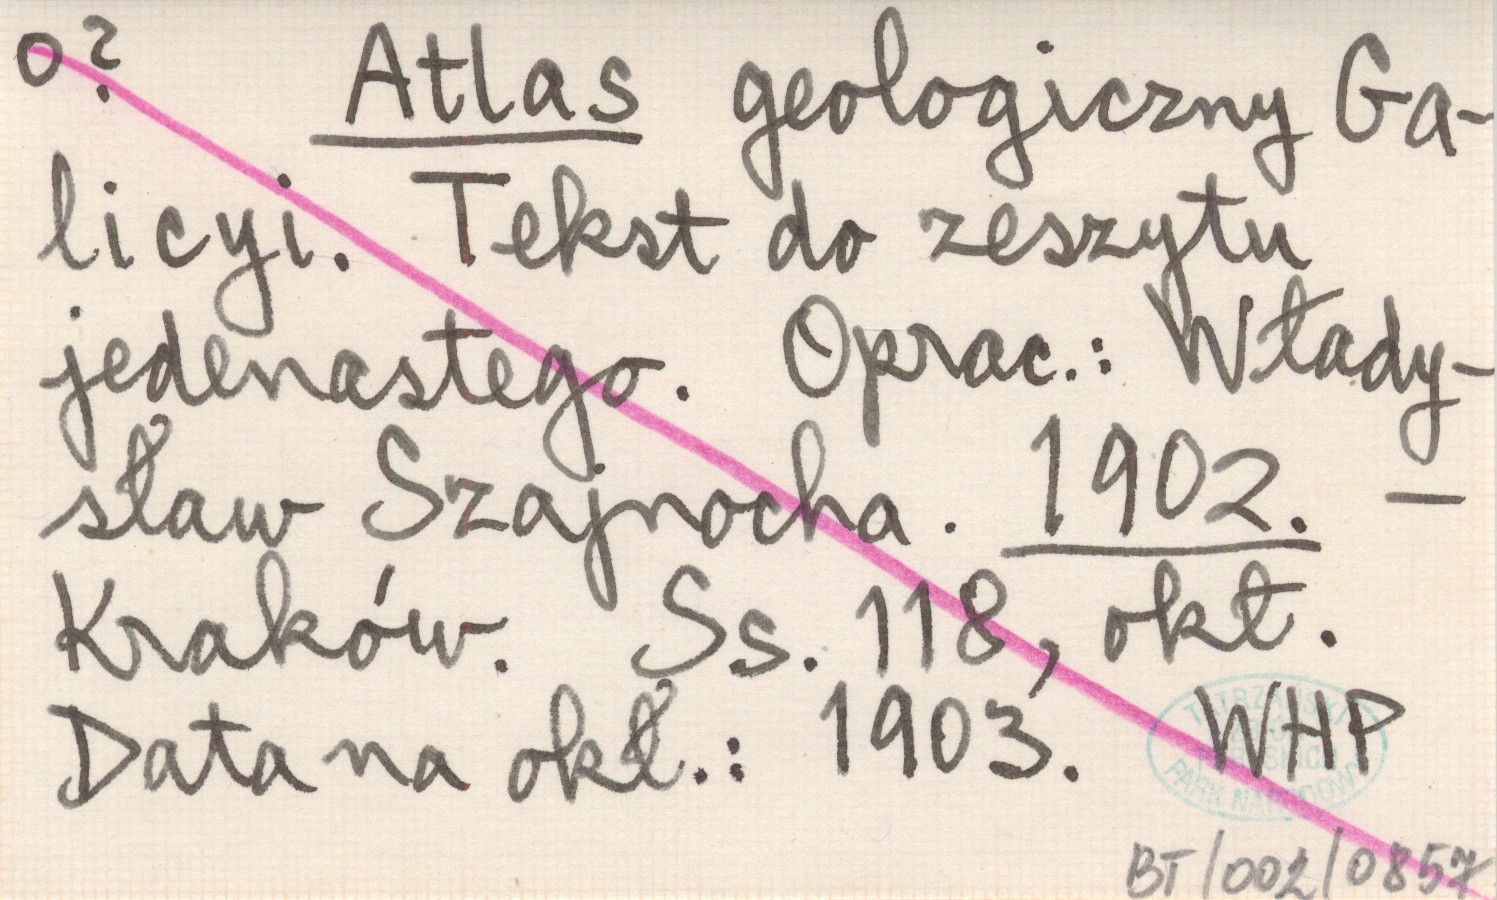 o? Atlas geologiczny Ga-
licyi. Tekst do zeszytu
jedenastego. Oprac.: Włady-
sław Szajnocha. 1902. —
Kraków. Ss. 118, okł.
Data na okł.: 1903. WHP
TATRZAŃSKI
PARK NARODOWY
BT/002/0857